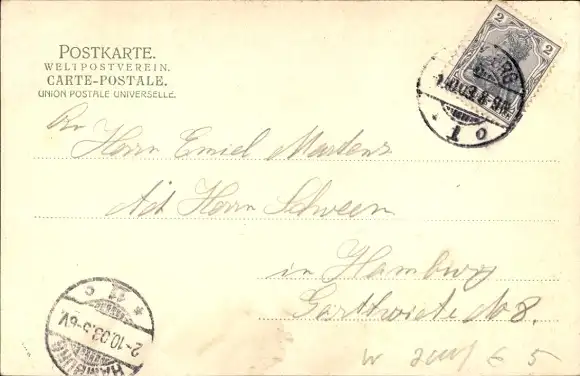 POSTKARTE.
WELTPOSTVEREIN.
CARTE-POSTALE.
UNION POSTALE UNIVERSELLE.
2 2
1 o
An
Herrn Emiel Martens
Adr Herrn Schween
in Hamburg
No 8.
HAMBURG
2-10.03.5-6V.
* 13 c
5